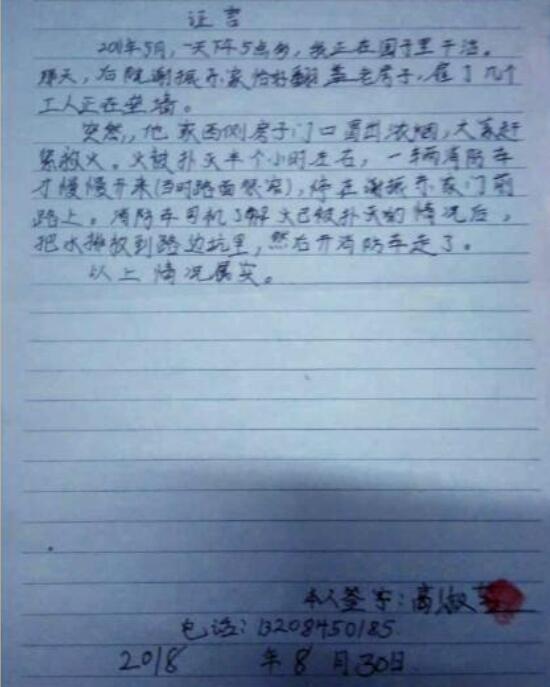 证言
2011年5月,一天下午5点多,我正在园子里干活。
那天,后院谢振亦家恰好翻盖老房子,雇了几个
工人正在垒墙。
突然,他家西侧房子门口冒出浓烟,大家赶
紧救火。火被扑灭半个小时左右,一辆消防车
才慢慢开来(当时路面很窄),停在谢振亦家门前
路上。消防车司机了解火已被扑灭的情况后,
把水排放到路边坑里,然后开消防车走了。
以上情况属实。
本人签字:高淑
电话:13208450185
2018年8月30日